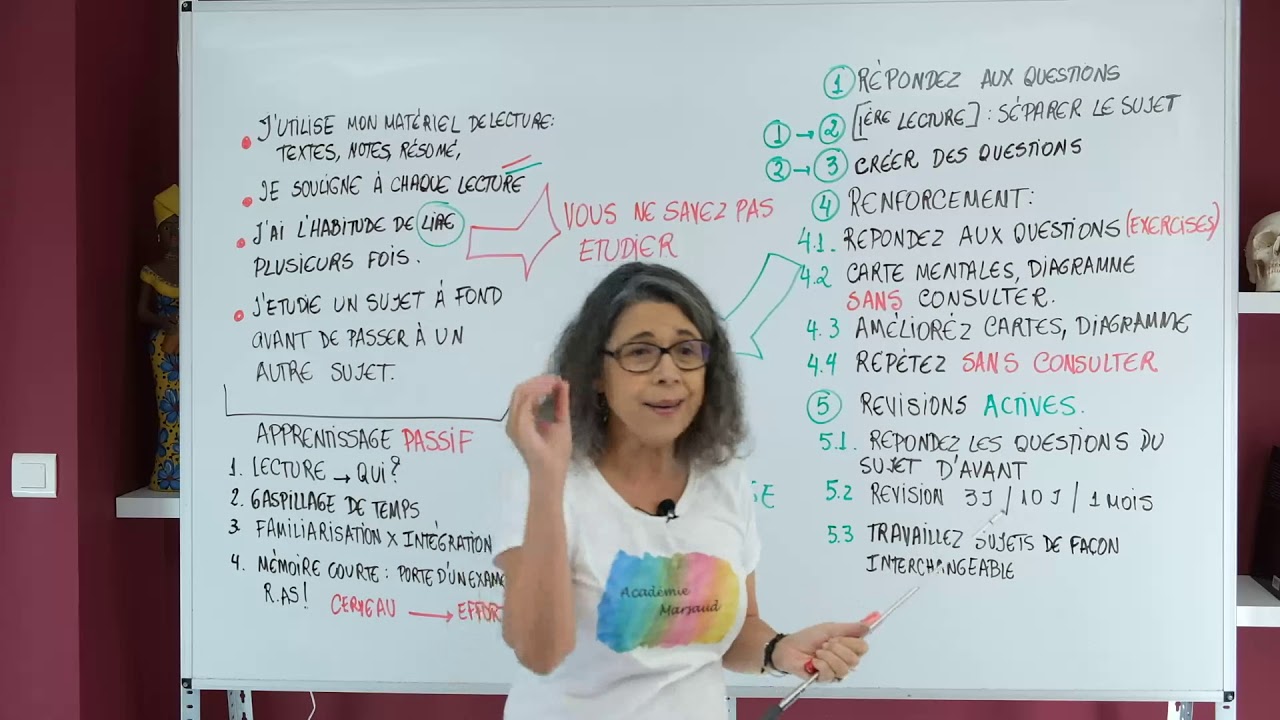 • J'UTILISE MON MATÉRIEL DE LECTURE:
TEXTES, NOTES, RÉSUMÉ,
• JE SOULIGNE À CHAQUE LECTURE
• J'AI L'HABITUDE DE LIRE
PLUSIEURS FOIS.
• J'ETUDIE UN SUJET À FOND
AVANT DE PASSER À UN
AUTRE SUJET.
APPRENTISSAGE PASSIF
1. LECTURE → QUI?
2. GASPILLAGE DE TEMPS
3 FAMILIARISATION X INTÉGRATION
4. MÉMOIRE COURTE: PORTE D'UN
R.AS!
CERVEAU → EFFOR
VOUS NE SAVEZ PAS
ETUDIER
① RÉPONDEZ AUX QUESTIONS
① → ② [1ÈRE LECTURE]: SÉPARER LE SUJET
② → ③ CRÉER DES QUESTIONS
④ RENFORCEMENT:
4.1. REPONDEZ AUX QUESTIONS (EXERCISES)
4.2 CARTE MENTALES, DIAGRAMME
SANS CONSULTER.
4.3 AMÉLIOREZ CARTES, DIAGRAMME
4.4 REPÉTEZ SANS CONSULTER
⑤ REVISIONS ACTIVES.
5.1. REPONDEZ LES QUESTIONS DU
SUJET D'AVANT
5.2 REVISION 3J / 10J / 1 MOIS
5.3 TRAVAILLEZ SUJETS DE FACON
INTERCHANGEABLE
Académie
Marjaud